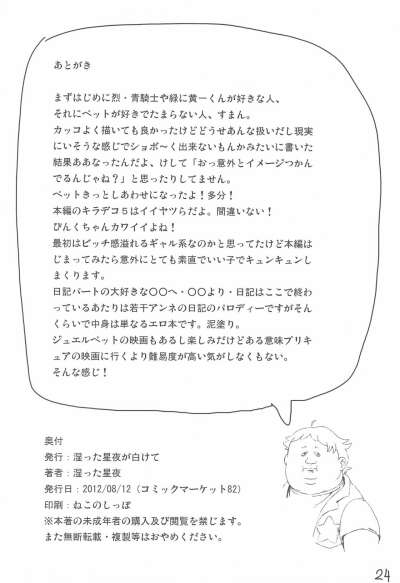 あとがき
まずはじめに烈・青騎士や緑に黄一くんが好きな人、
それにペットが好きでたまらない人、すまん。
カッコよく描いても良かったけどどうせあんな扱いだし現実
にいそうな感じでショボ〜く出来ないもんかみたいに書いた
結果ああなったんだよ、けして「おっ意外とイメージつかん
でるんじゃね？」と思ったりしてません。
ペットきっとしあわせになったよ！多分！
本編のキラデコ５はイイヤツらだよ。間違いない！
ぴんくちゃんカワイイよね！
最初はビッチ感溢れるギャル系なのかと思ってたけど本編は
じまってみたら意外にとても素直でいい子でキュンキュンし
まくります。
日記パートの大好きな〇〇へ・〇〇より・日記はここで終わ
っているあたりは若干アンネの日記のパロディーですがそん
くらいで中身は単なるエロ本です。泥塗り。
ジュエルペットの映画もあるし楽しみだけどある意味プリキ
ュアの映画に行くより難易度が高い気がしなくもない。
そんな感じ！
奥付
発行：湿った星夜が白けて
著者：湿った星夜
発行日：2012/08/12（コミックマーケット82）
印刷：ねこのしっぽ
※本著の未成年者の購入及び閲覧を禁じます。
また無断転載・複製等はおやめください。
24